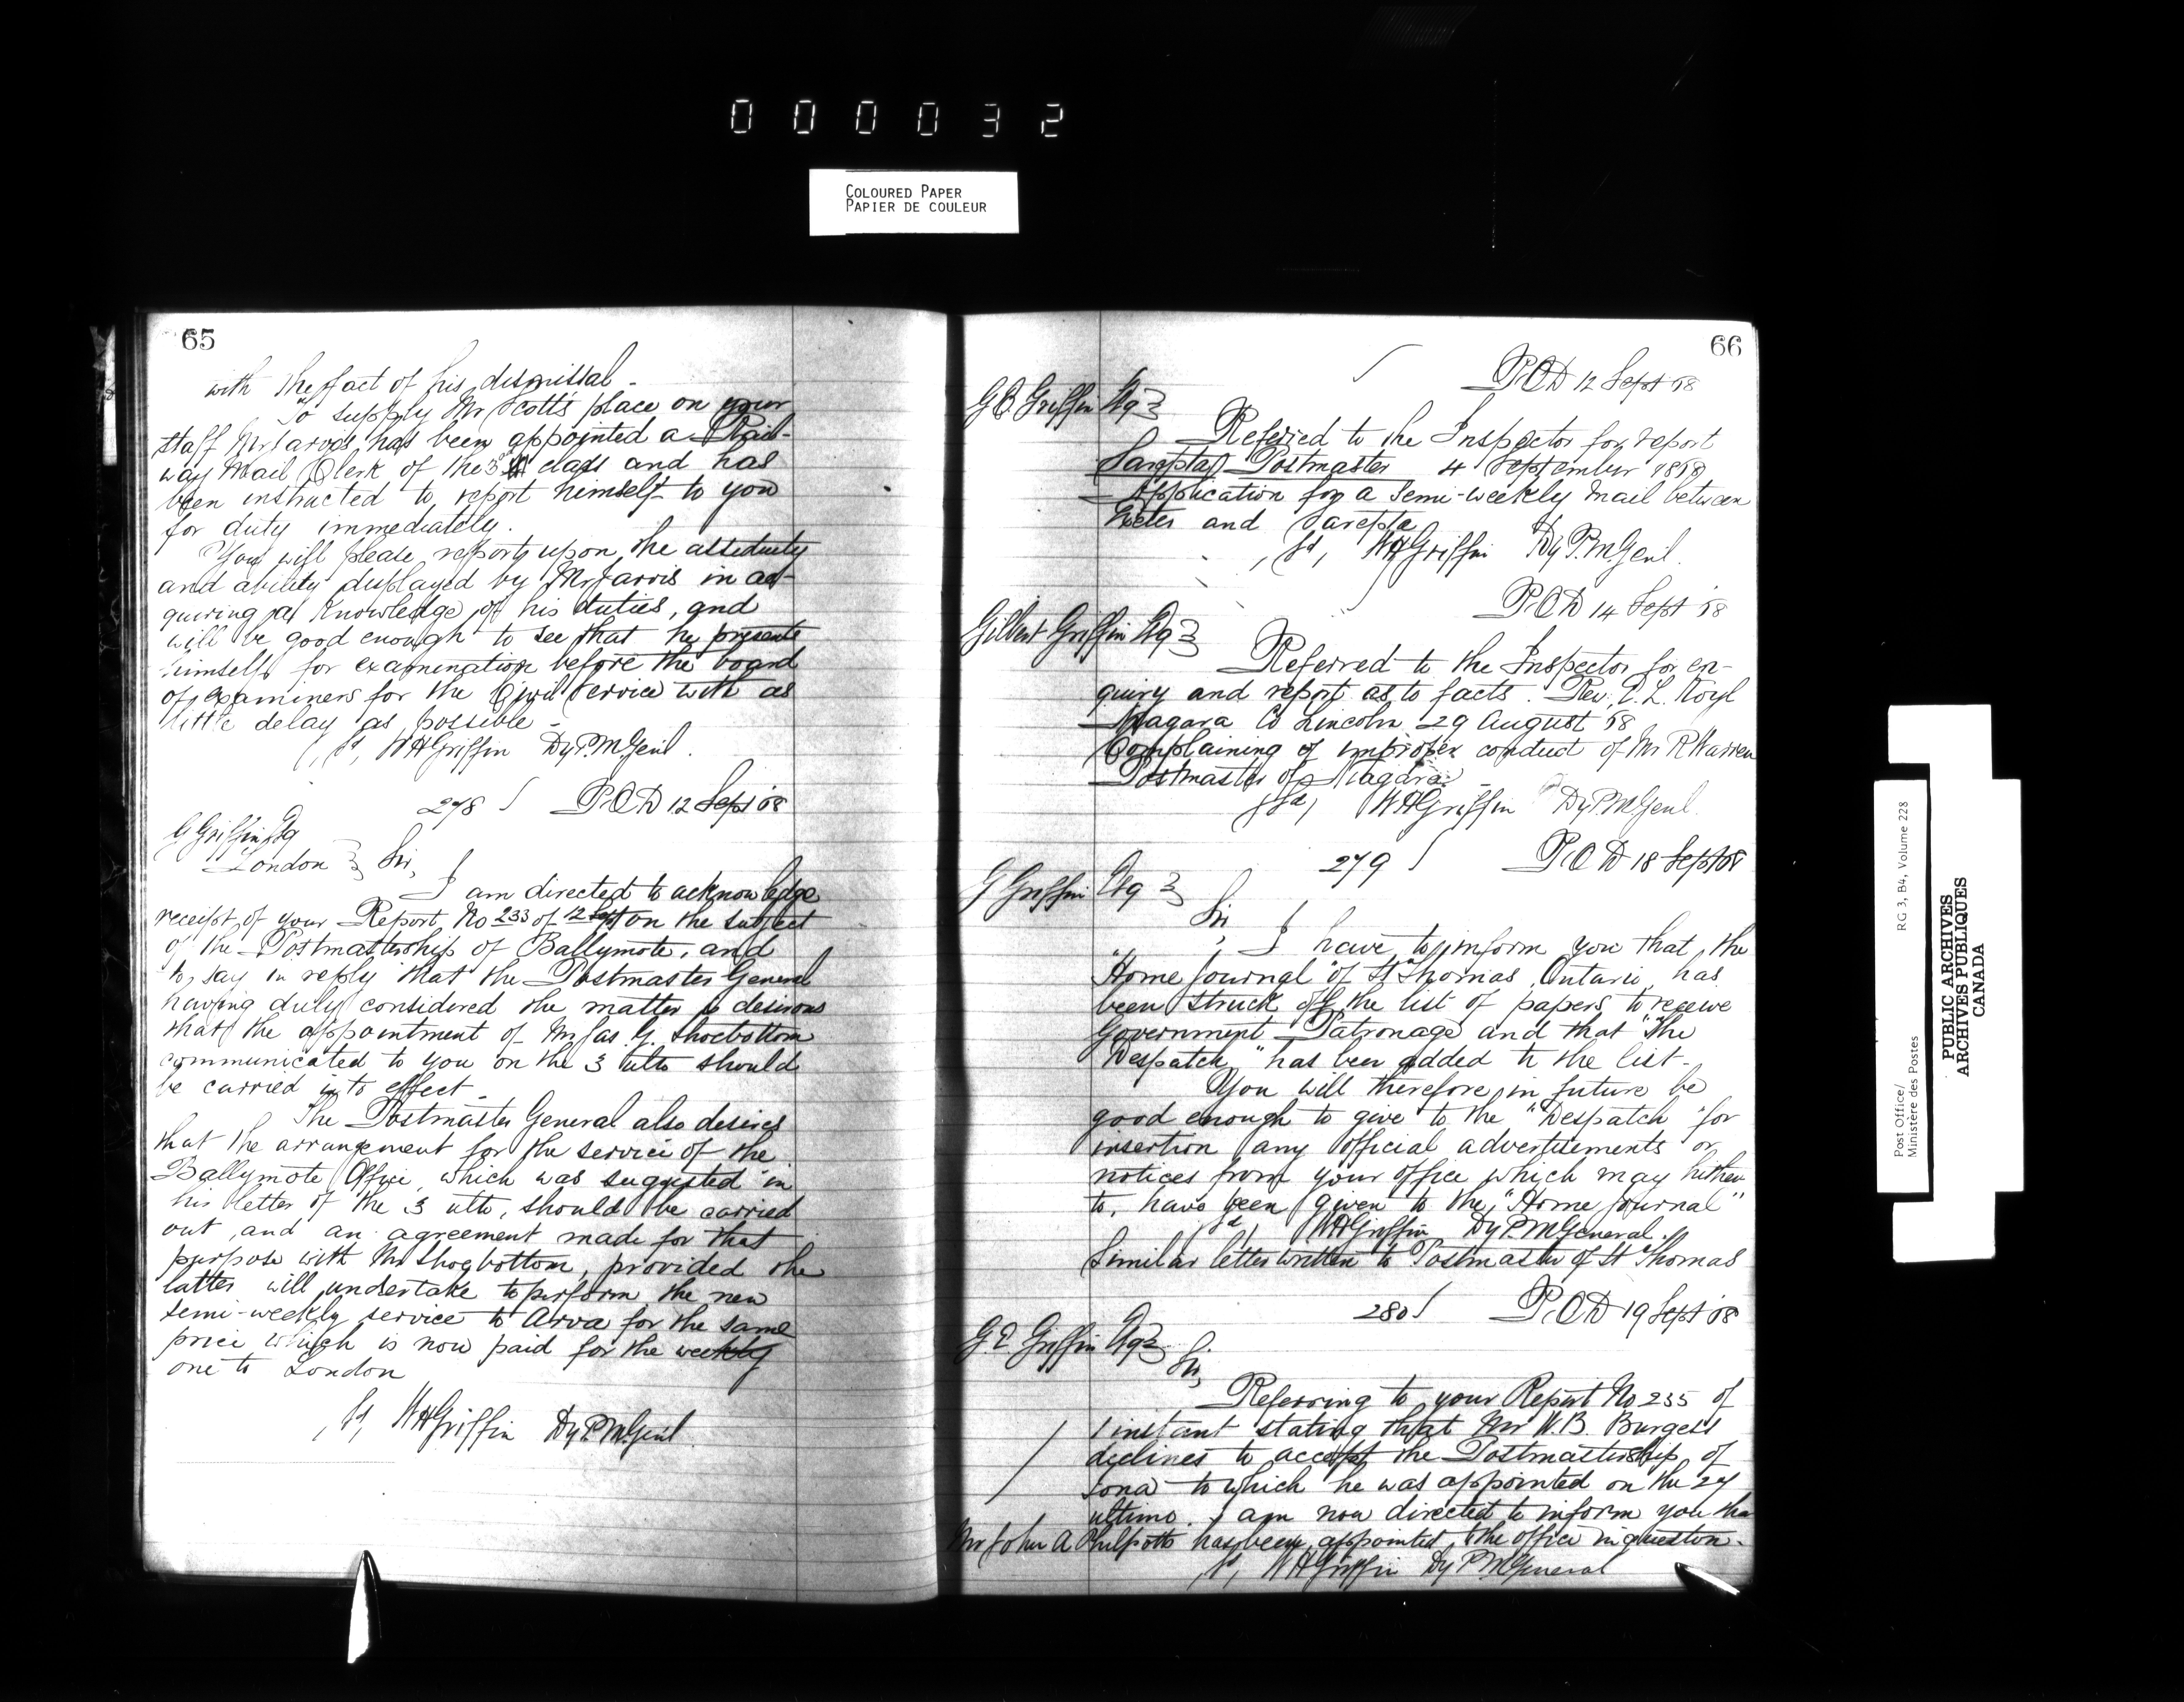 0 0 0 0 3 2
COLOURED PAPER
PAPIER DE COULEUR
65
with the fact of his dismissal -
To supply Mr Scott's place on your
staff Mr Jarvis has been appointed a Rail-
way Mail Clerk of the 3rd class and has
been instructed to report himself to you
for duty immediately.
You will please report upon the assiduity
and ability displayed by Mr Jarvis in ac-
quiring a knowledge of his duties, and
will be good enough to see that he presents
himself for examination before the board
of examiners for the Civil Service with as
little delay as possible -
(sd, WHGriffin DyP.M.Genl.
278 P.O.D 12 Sept '68
G Griffin Esq
London } Sir,
I am directed to acknowledge
receipt of your Report No 233 of 12 Sept on the subject
of the Postmastership of Ballymote, and
to say in reply that the Postmaster General
having duly considered the matter is desirous
that the appointment of Mr Jas. G. Shoebottom
communicated to you on the 3 ulto should
be carried into effect -
The Postmaster General also desires
that the arrangement for the service of the
Ballymote Office which was suggested in
his letter of the 3 ulto, should be carried
out, and an agreement made for that
purpose with Mr Shoebottom, provided the
latter will undertake to perform the new
semi-weekly service to Arva for the same
price which is now paid for the weekly
one to London
(sd, WHGriffin DyP.M.Genl.
66
P.O.D 12 Sept '68
G.E. Griffin Esq }
Referred to the Inspector for report
Sarepta Postmaster 4 September 1868
Application for a semi-weekly Mail between
Exeter and Sarepta
(sd, WHGriffin Dy P.M.Genl.
P.O.D 14 Sept '68
Gilbert Griffin Esq }
Referred to the Inspector for en-
quiry and report as to facts. Rev.
Niagara Co Lincoln 29 August '68
Complaining of improper conduct of Mr R Warren
Postmaster of Niagara -
(sd, WHGriffin DyP.M.Genl.
279 P.O.D 18 Sept '68
G Griffin Esq }
Sir,
I have to inform you that the
"Home Journal" of St Thomas, Ontario, has
been struck off the list of papers to receive
Government Patronage and that "The
Despatch" has been added to the list -
You will therefore in future be
good enough to give to the "Despatch" for
insertion any official advertisements or
notices from your office which may hither
to, have been given to the "Home Journal"
sd, WHGriffin DyP.M.General.
Similar letter written to Postmaster of St Thomas
280 P.O.D 19 Sept '68
G.E. Griffin Esq }
Sir,
Referring to your Report No 235 of
1 instant stating that Mr W.B. Burgess
declines to accept the Postmastership of
Iona to which he was appointed on the 27
ultimo. I am now directed to inform you tha
Mr John A Philpotts has been appointed to the office in question -
sd, WHGriffin Dy P.M.General
Post Office/
Ministère des Postes
RG 3, B4, Volume 228
PUBLIC ARCHIVES
ARCHIVES PUBLIQUES
CANADA